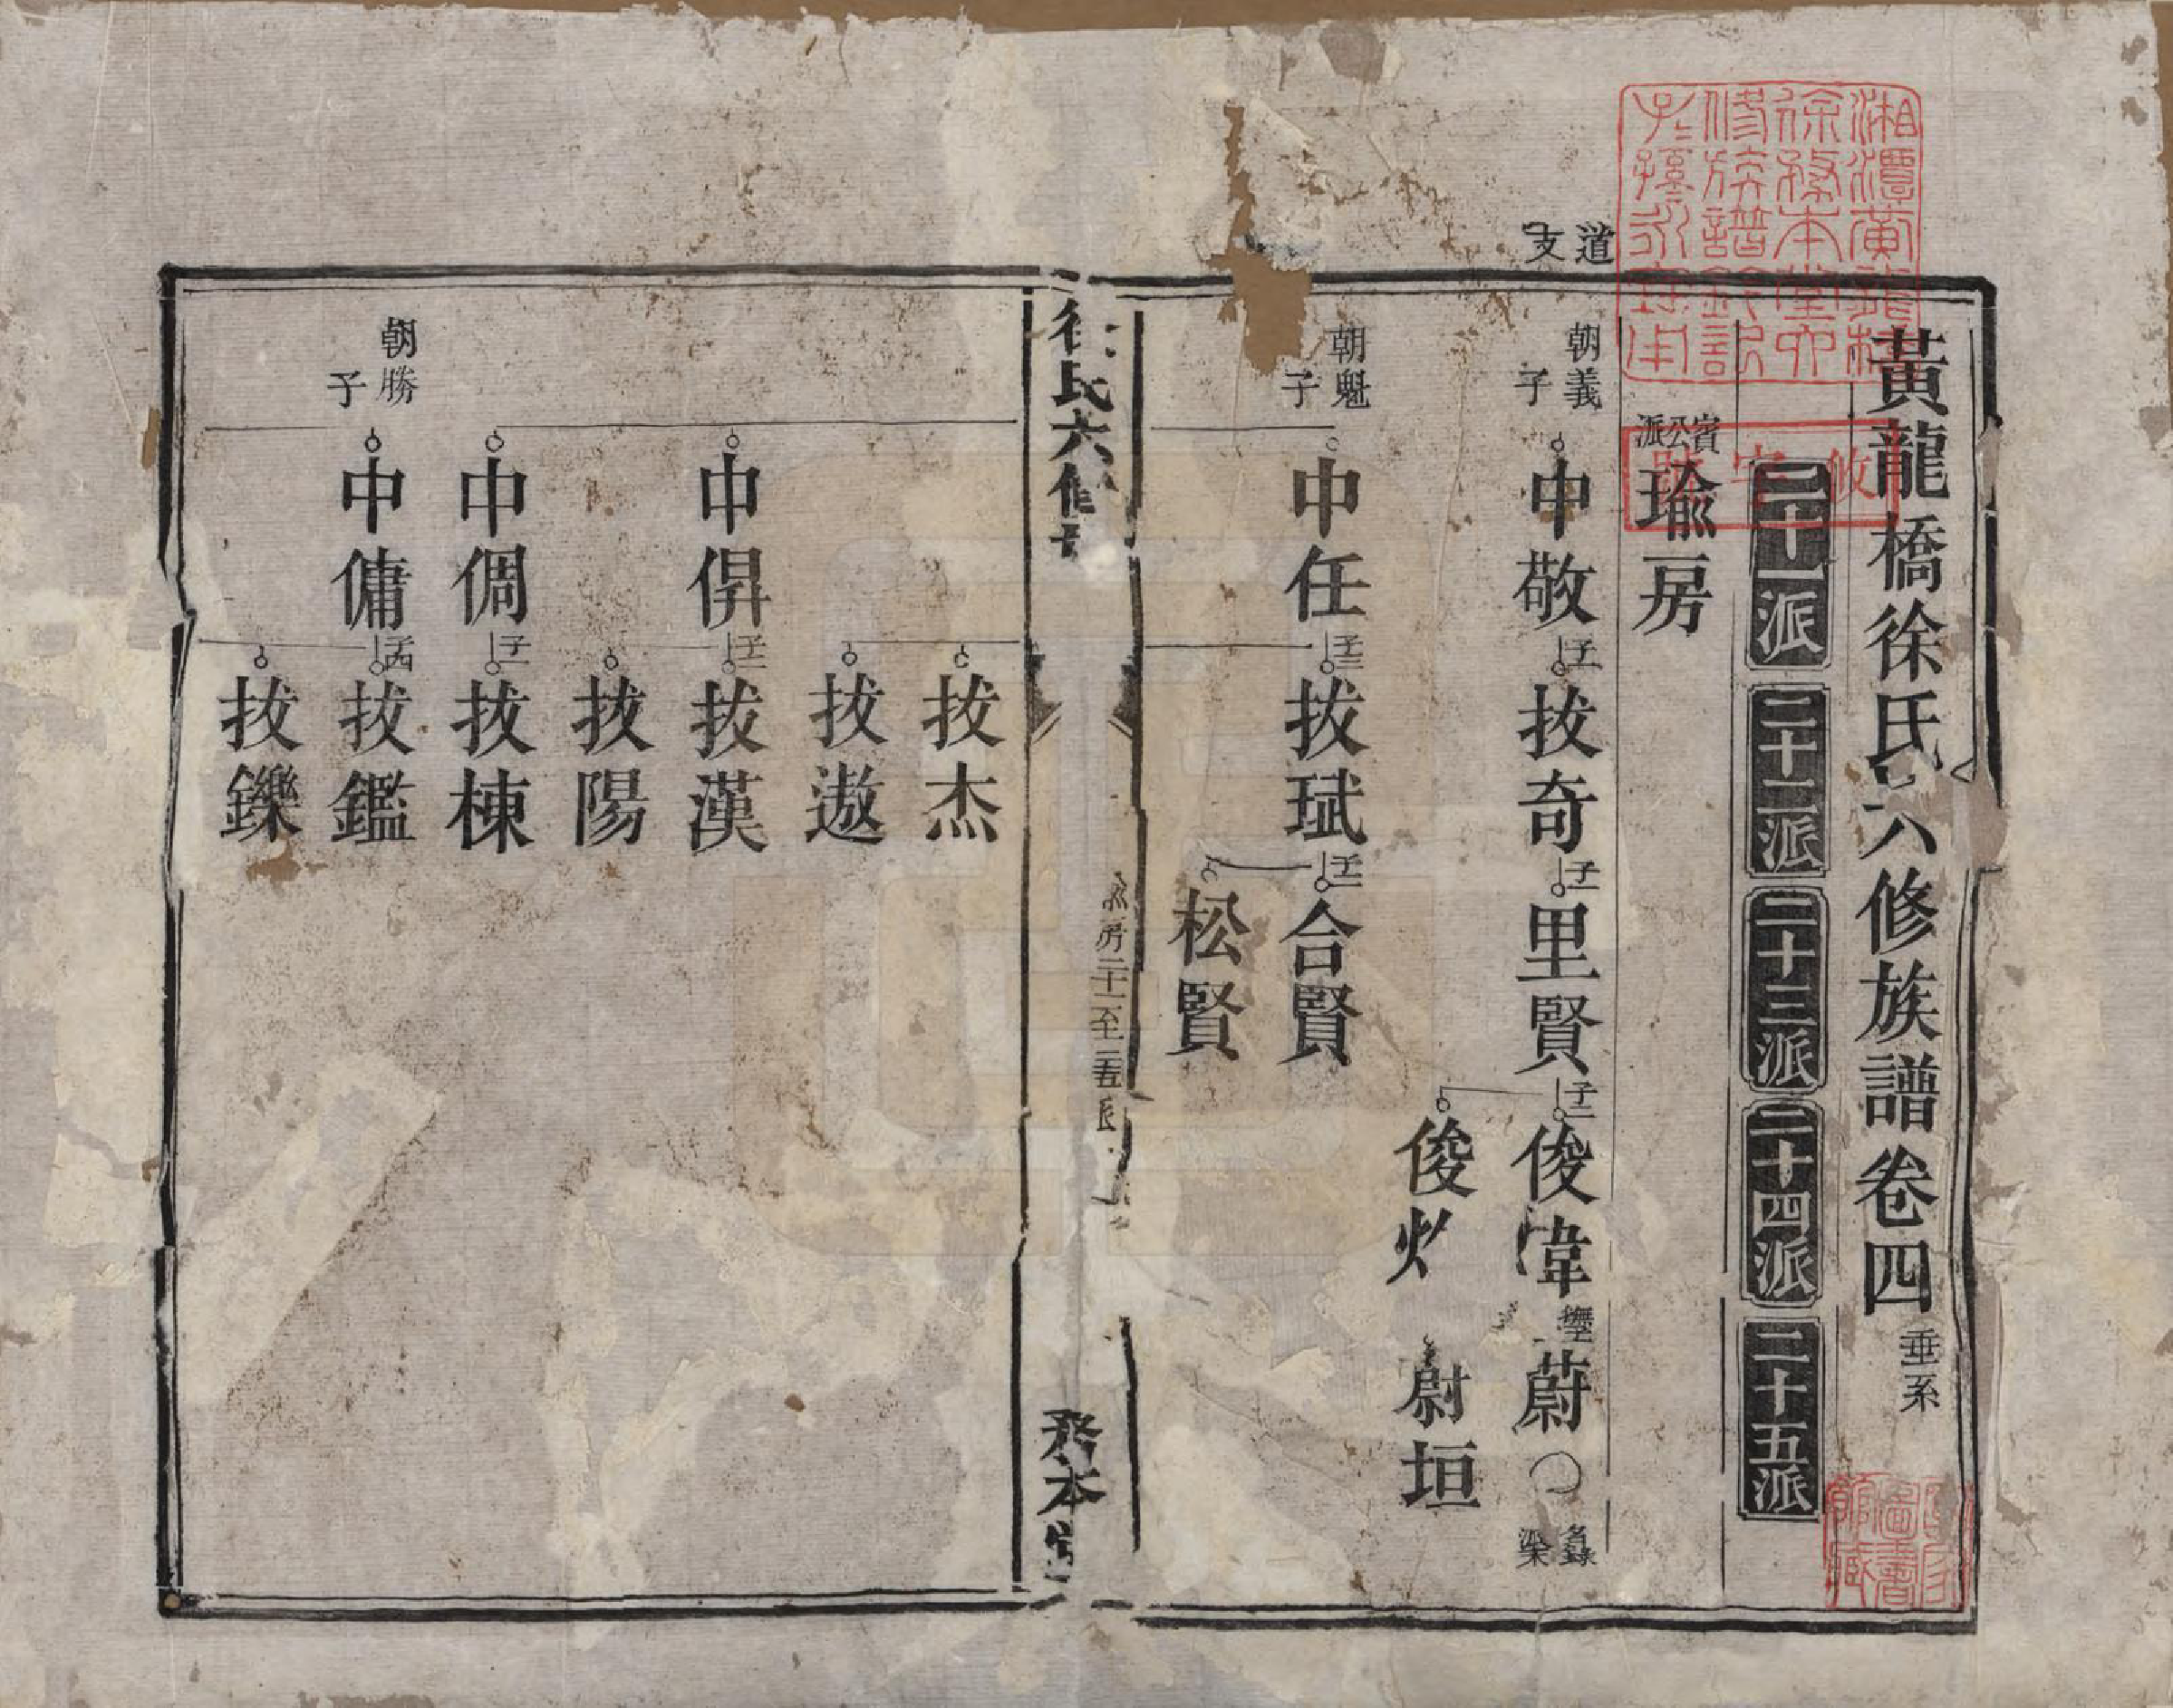 黃龍橋徐氏六修族譜卷四 垂系
二十一派 二十二派 二十三派 二十四派 二十五派
賓公派 瑜房
道支
朝義子 中敬 子一 拔奇 子一 里賢 子二 俊煒 蔚
俊 尉垣
朝魁子 中任 子三 拔珷 子二 合賢
松賢
徐氏六修
房二十一至二十五派
務本堂
拔杰
拔遨
中㑻 子二 拔漢
拔陽
中倜 子一 拔棟
朝勝子 中傭 子四 拔鑑
拔鑠
湘潭黃龍橋徐務本堂六修族譜鈐記子孫永寶用